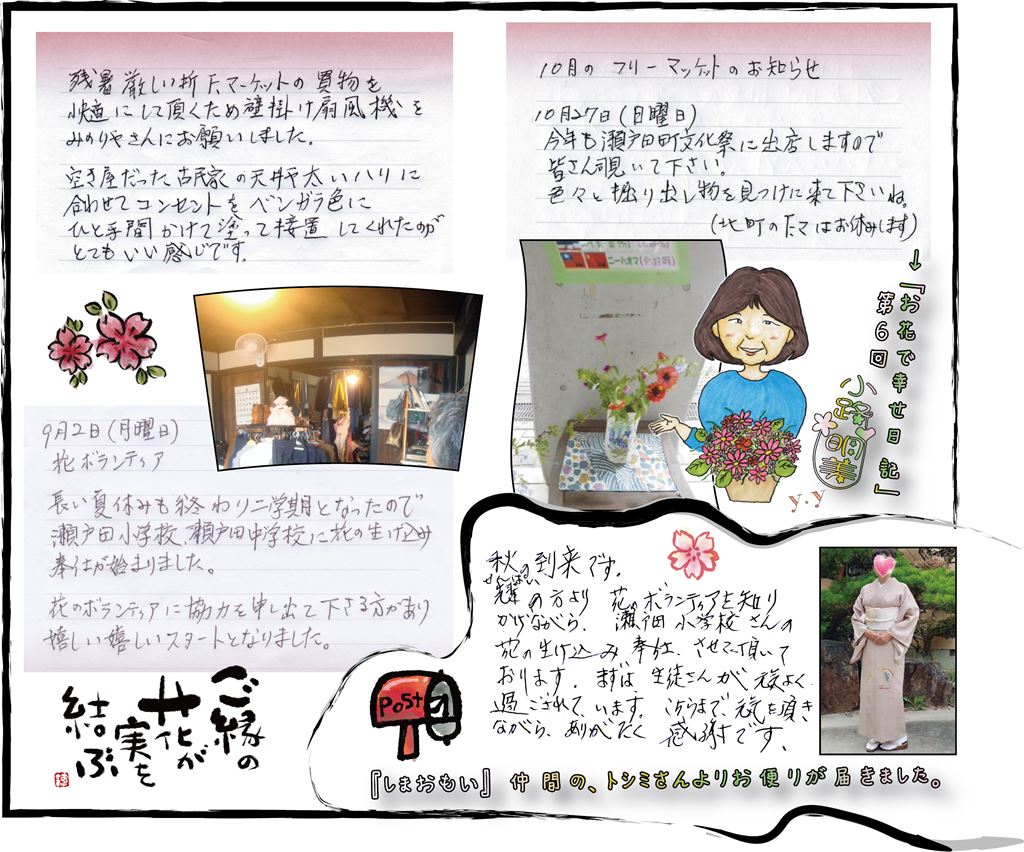 残暑厳しい折 F.マーケットの買物を
快適にして頂くため壁掛け扇風機を
みのりやさんにお願いしました。
空き屋だった古民家の天井や太いハリに
合わせてコンセントをベンガラ色に
ひと手間かけて塗って接置してくれたのが
とてもいい感じです。
10月のフリーマッケットのお知らせ
10月27日(月曜日)
今年も瀬戸田町文化祭に出店しますので
皆さん覗いて下さい。
色々と掘り出し物を見つけに来て下さいね。
(北町のF.マはお休みします)
ニーハオマ
↓『お花で幸せ日記』
第6回
小路
明美
y.y
9月2日(月曜日)
花ボランティア
長い夏休みも終わり二学期となったので
瀬戸田小学校、瀬戸田中学校に花の生け込み
奉仕が始まりました。
花のボランティアに協力を申し出て下さる方があり
嬉しい嬉しいスタートとなりました。
ご縁の
花が
実を
結ぶ
POST
秋の到来です。
せんぱい
輩の方より 花のボランティアを知り
かげながら、瀬戸田小学校さんの
花の生け込み奉仕、させて頂いて
おります。まずは生徒さんが元気よく
過ごされています。こちらまで、元気を頂き
ながら、ありがたく 感謝です。
『しまおもい』仲間の、トシミさんよりお便りが届きました。